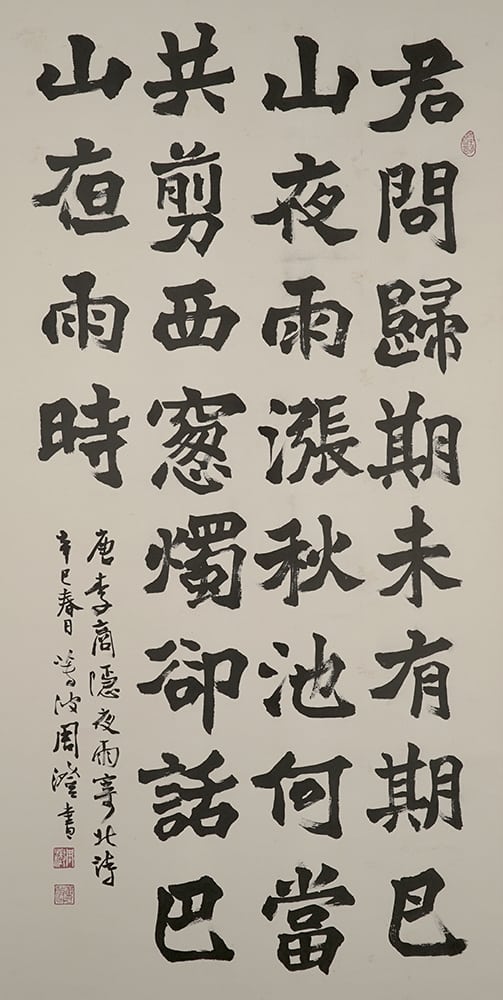 君問歸期未有期巴
山夜雨漲秋池何當
共剪西窻燭卻話巴
山夜雨時
唐李商隱夜雨寄北詩
辛巳春日蓴波周澄書